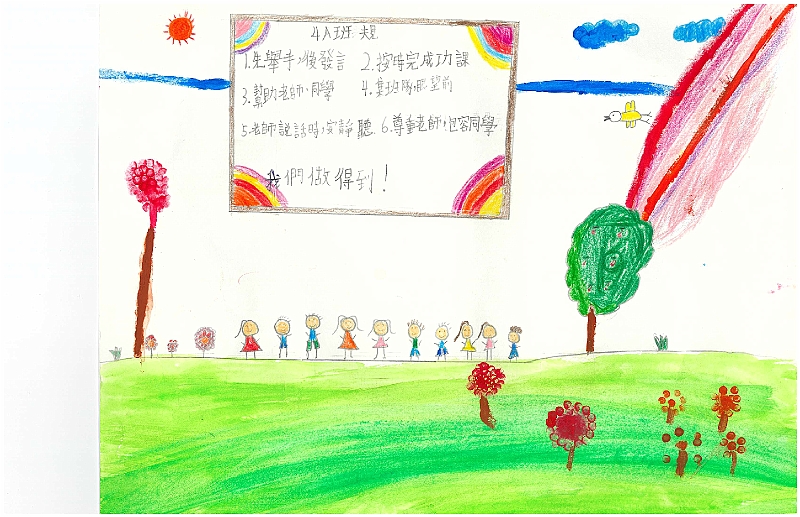 4A班 規
1.先舉手,後發言 2.按時完成功課
3.幫助老師,同學 4.集班隊,眼望前
5.老師說話時,安靜聽 6.尊重老師,包容同學
我們做得到!